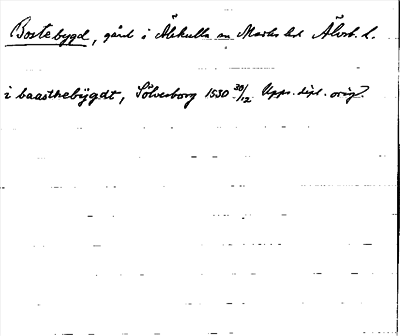 Bostebygd, gård i Älekulla sn Marks hd Älvsb. l.
i baasthebÿgdt, Sölvesborg 1530 30/12 Upps. dipl. orig.